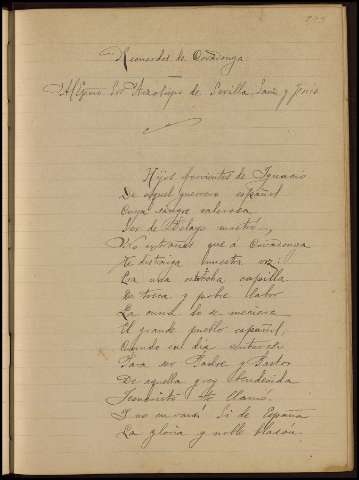 Recuerdos de Covadonga
Al Excmo Sor Arzobispo de Sevilla Sanz y Forés
Hijos fervientes de Ignacio
De aquel guerrero español
Cuya sangre valerosa
Ser de Pelayo mostró,
No extrañes que á Covadonga
Era una estrecha capilla
De tosca y pobre labor
La cuna do se meciera
El grande pueblo español,
Cuando un día
Para ser Padre y Pastor
De aquella grey
Jesucristo te llamó.
Y no en vano! Si de España
La gloria y noble blasón.